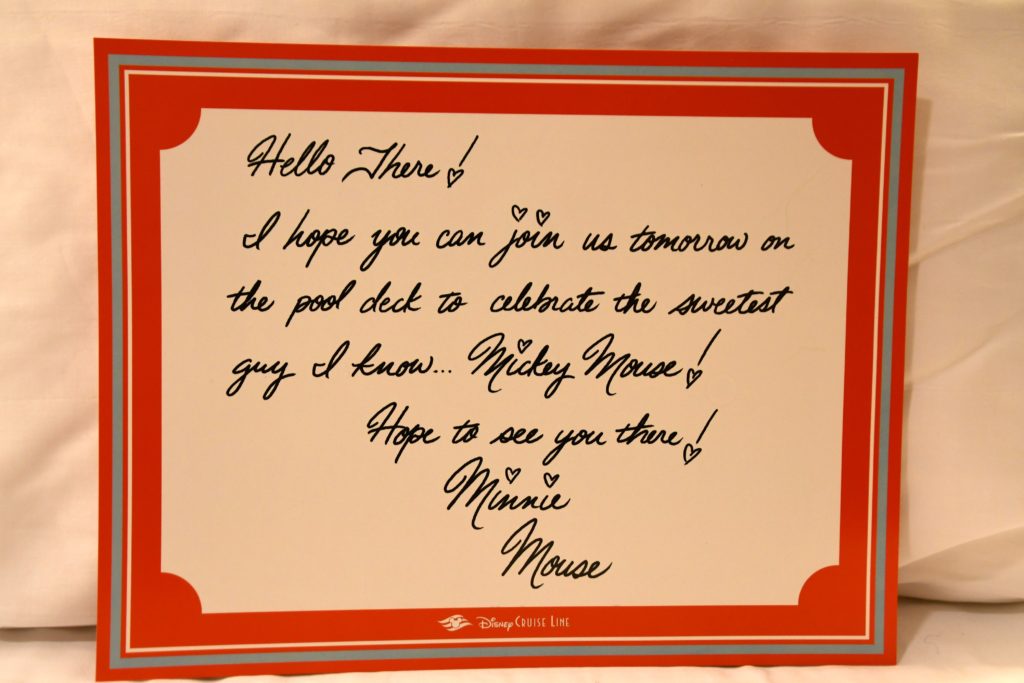 Hello There!
I hope you can join us tomorrow on
the pool deck to celebrate the sweetest
guy I know... Mickey Mouse!
Hope to see you there!
Minnie
Mouse
Disney Cruise Line